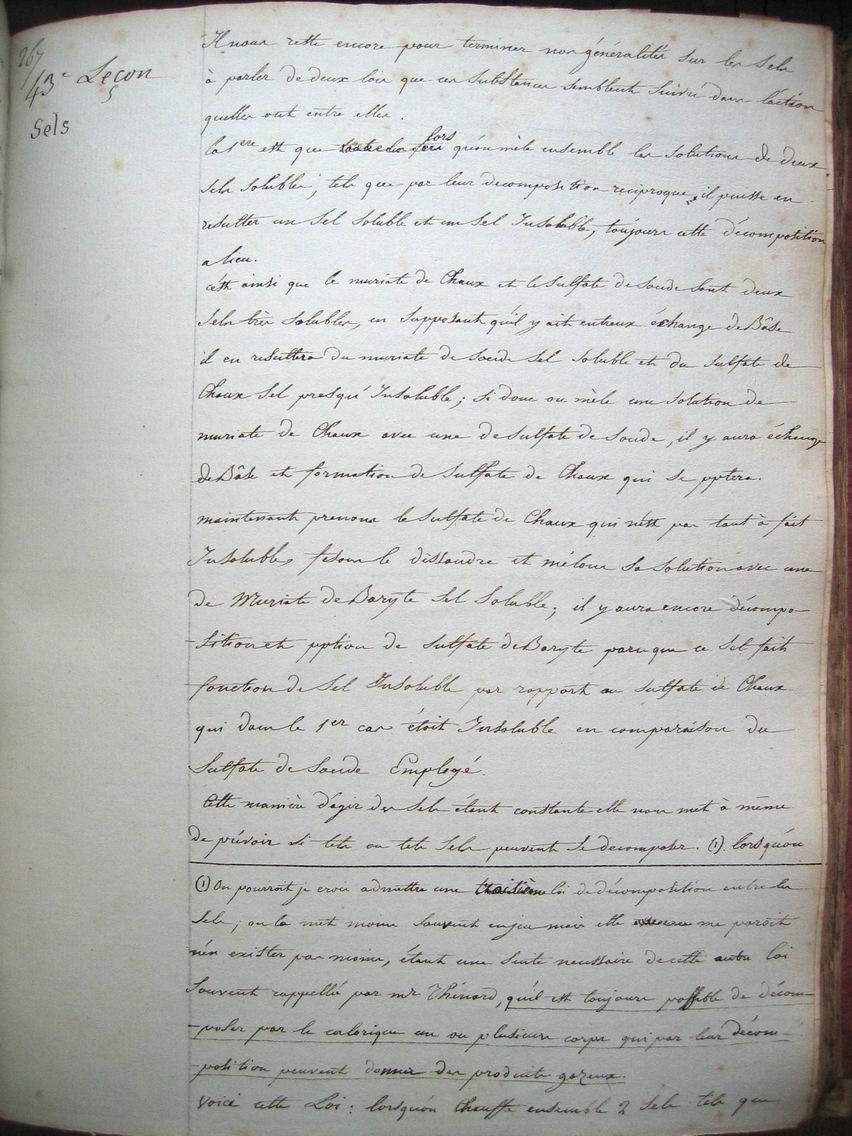 267
43e Leçon
Sels
Il nous reste encore pour terminer nos généralités sur les Sels
à parler de deux lois que ces substances semblent suivre dans l'action
quelles ont entre elles.
la 1ere est que toutes les fois lors qu'on mèle ensemble les solutions de deux
sels solubles, tels que par leur decomposition reciproque, il puisse en
resulter un Sel soluble et un Sel Insoluble, toujours cette décomposition
a lieu.
c'est ainsi que le muriate de Chaux et le Sulfate de Soude sont deux
Sels très solubles, en supposant qu'il y ait entreux échange de Bâse
il en resultera du muriate de soude sel soluble et du sulfate de
Chaux Sel presqu' Insoluble; si donc on mèle une solution de
muriate de Chaux avec une de sulfate de Soude, il y aura échange
de Bâse et formation de Sulfate de Chaux qui se pptera.
maintenant prenons le sulfate de Chaux qui n'est pas tout à fait
Insoluble, fesons le dissoudre et mélons sa solution avec une
de Muriate de Baryte Sel Soluble; il y aura encore décompo-
-sition et pption de sulfate de Baryte parceque ce Sel fait
fonction de Sel Insoluble par rapport au sulfate de Chaux
qui dans le 1er cas étoit Insoluble en comparaison du
Sulfate de Soude Employé.
Cette manière d'agir des Sels étant constante elle nous met à même
de prévoir si tels ou tels Sels peuvent se decomposer. (1). lorsqu'on
(1) On pourroit je crois admettre une troisième loi de décomposition entre les
Sels; on la met moins souvent en jeu mais elle me paroit
n'en exister pas moins, étant une suite necessaire de cette autre loi
souvent rappellé par mr Thénard, qu'il est toujours possible de décom-
-poser par le calorique un ou plusieurs corps qui par leur décom-
-position peuvent donner des produits gazeux.
Voici cette Loi: lorsqu'on chauffe ensemble 2 Sels tels que